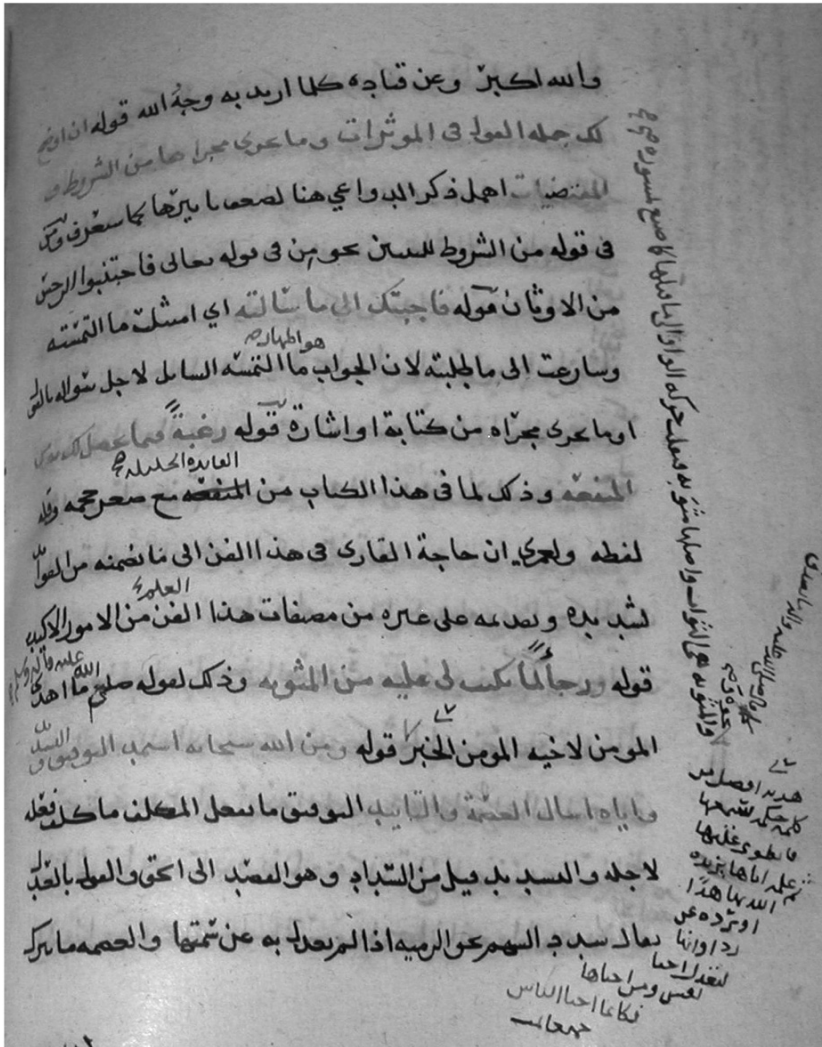 والله اكبر وعن قتاده كلما اريد به وجه الله قوله ان اوضح
لك جمله القول في الموثرات وما يجرى مجراها من الشروط و
المقتضيات اهمل ذكر الدواعي هنا لضعف تاثيرها كما ستعرف
في قوله من الشروط للتبيين نحو من في قوله تعالى فاجتنبوا الرجس
من الاوثان قوله فاجبتك الى ما سالته اي امتثلت ما التمسته
وسارعت الى ما طلبته لان الجواب هو المهاره ما التمسه السايل لاجل سواله بالقول
او ما يجرى مجراه من كتابة او اشارة قوله رغبة فيما يحصل لك من
المنفعه وذلك لما في هذا الكتاب من المنفعه الفايده الجليله مع صغر حجمه وقله
لفظه ولعمري ان حاجة القارى في هذا الفن الى ما تضمنه من الفوايد
لشديده وتقدمه على غيره من مصنفات هذا الفن العلم من الامور الاكيده
قوله ورجا لما يكتب لى عليه من المثوبه وذلك لقوله صلى الله عليه واله وسلم ما اهدى
المومن لاخيه المومن الخبر قوله ومن الله سبحانه استمد التوفيق و التسديد
واياه اسال العصمة والتاييد التوفيق ما يفعل المكلف ما كلف فعله
لاجله والتسديد قيل من السداد وهو القصد الى الحق والقول بالعدل
يقال سدد السهم نحو الرميه اذا لم يعدل به عن سمتها والعصمه ما يترك
والمثوبه هي الثواب واصلها مثوبه فنقلت حركه الواو الى ما قبلها كما صنع لمشوره
هديه افضل من
كلمه حكمه سمعها
فانطوى عليها
ثم علمه اياها يزيده
الله بها هدا
او يرده عن
ردا وانها
لتعدل احيا
نفس ومن احياها
فكانما احيا الناس
جميعا